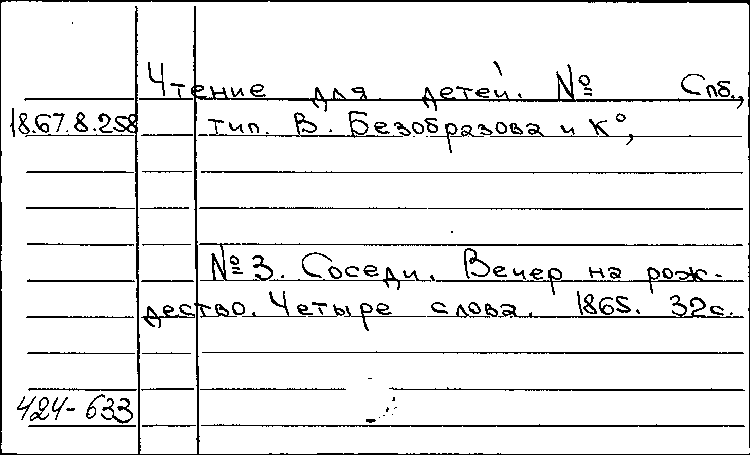 Чтение для детей. № Спб.,
18.67.8.258 тип. В. Безобразова и К°,
№ 3. Соседи. Вечер на рож-
дество. Четыре слова. 1865. 32с.
424-633